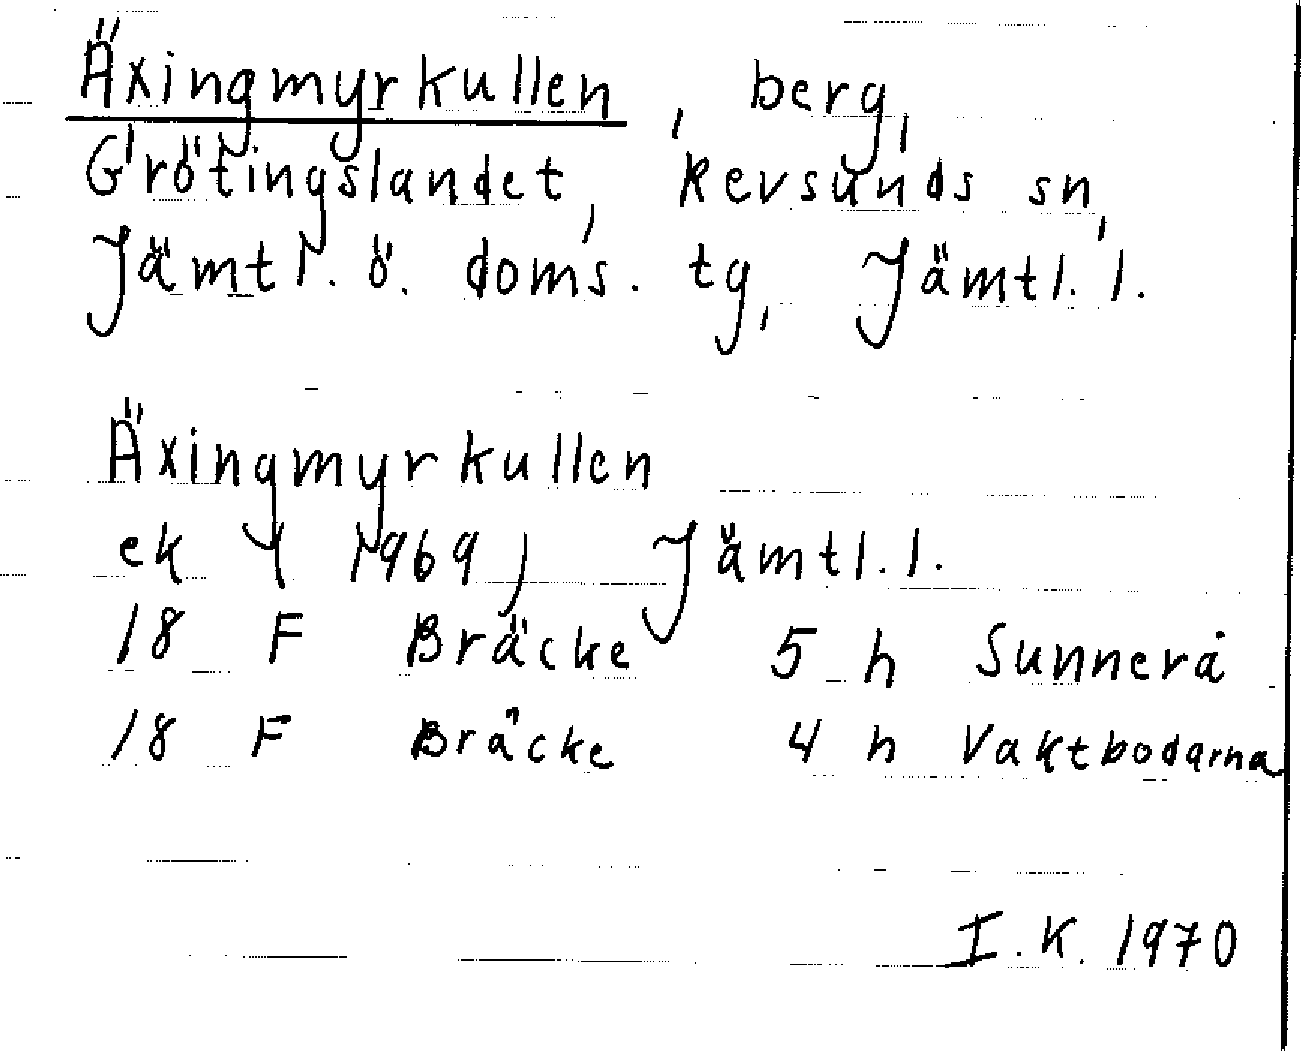 Äxingmyrkullen, berg,
Grötingslandet, Revsunds sn,
Jämtl. ö. doms. tg, Jämtl. l.
Äxingmyrkullen
ek Y 1969, Jämtl. l.
18 F Bräcke 5 h Sunnerå
18 F Bräcke 4 h Vaktbodarna
I.K. 1970